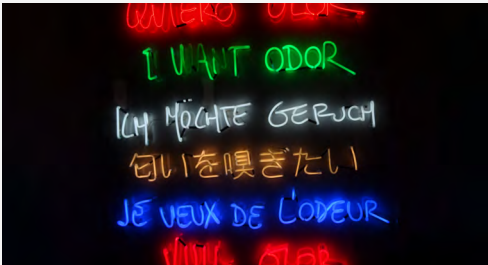 QUIERO OLOR
I WANT ODOR
ICH MÖCHTE GERUCH
匂いを嗅ぎたい
JE VEUX DE L'ODEUR